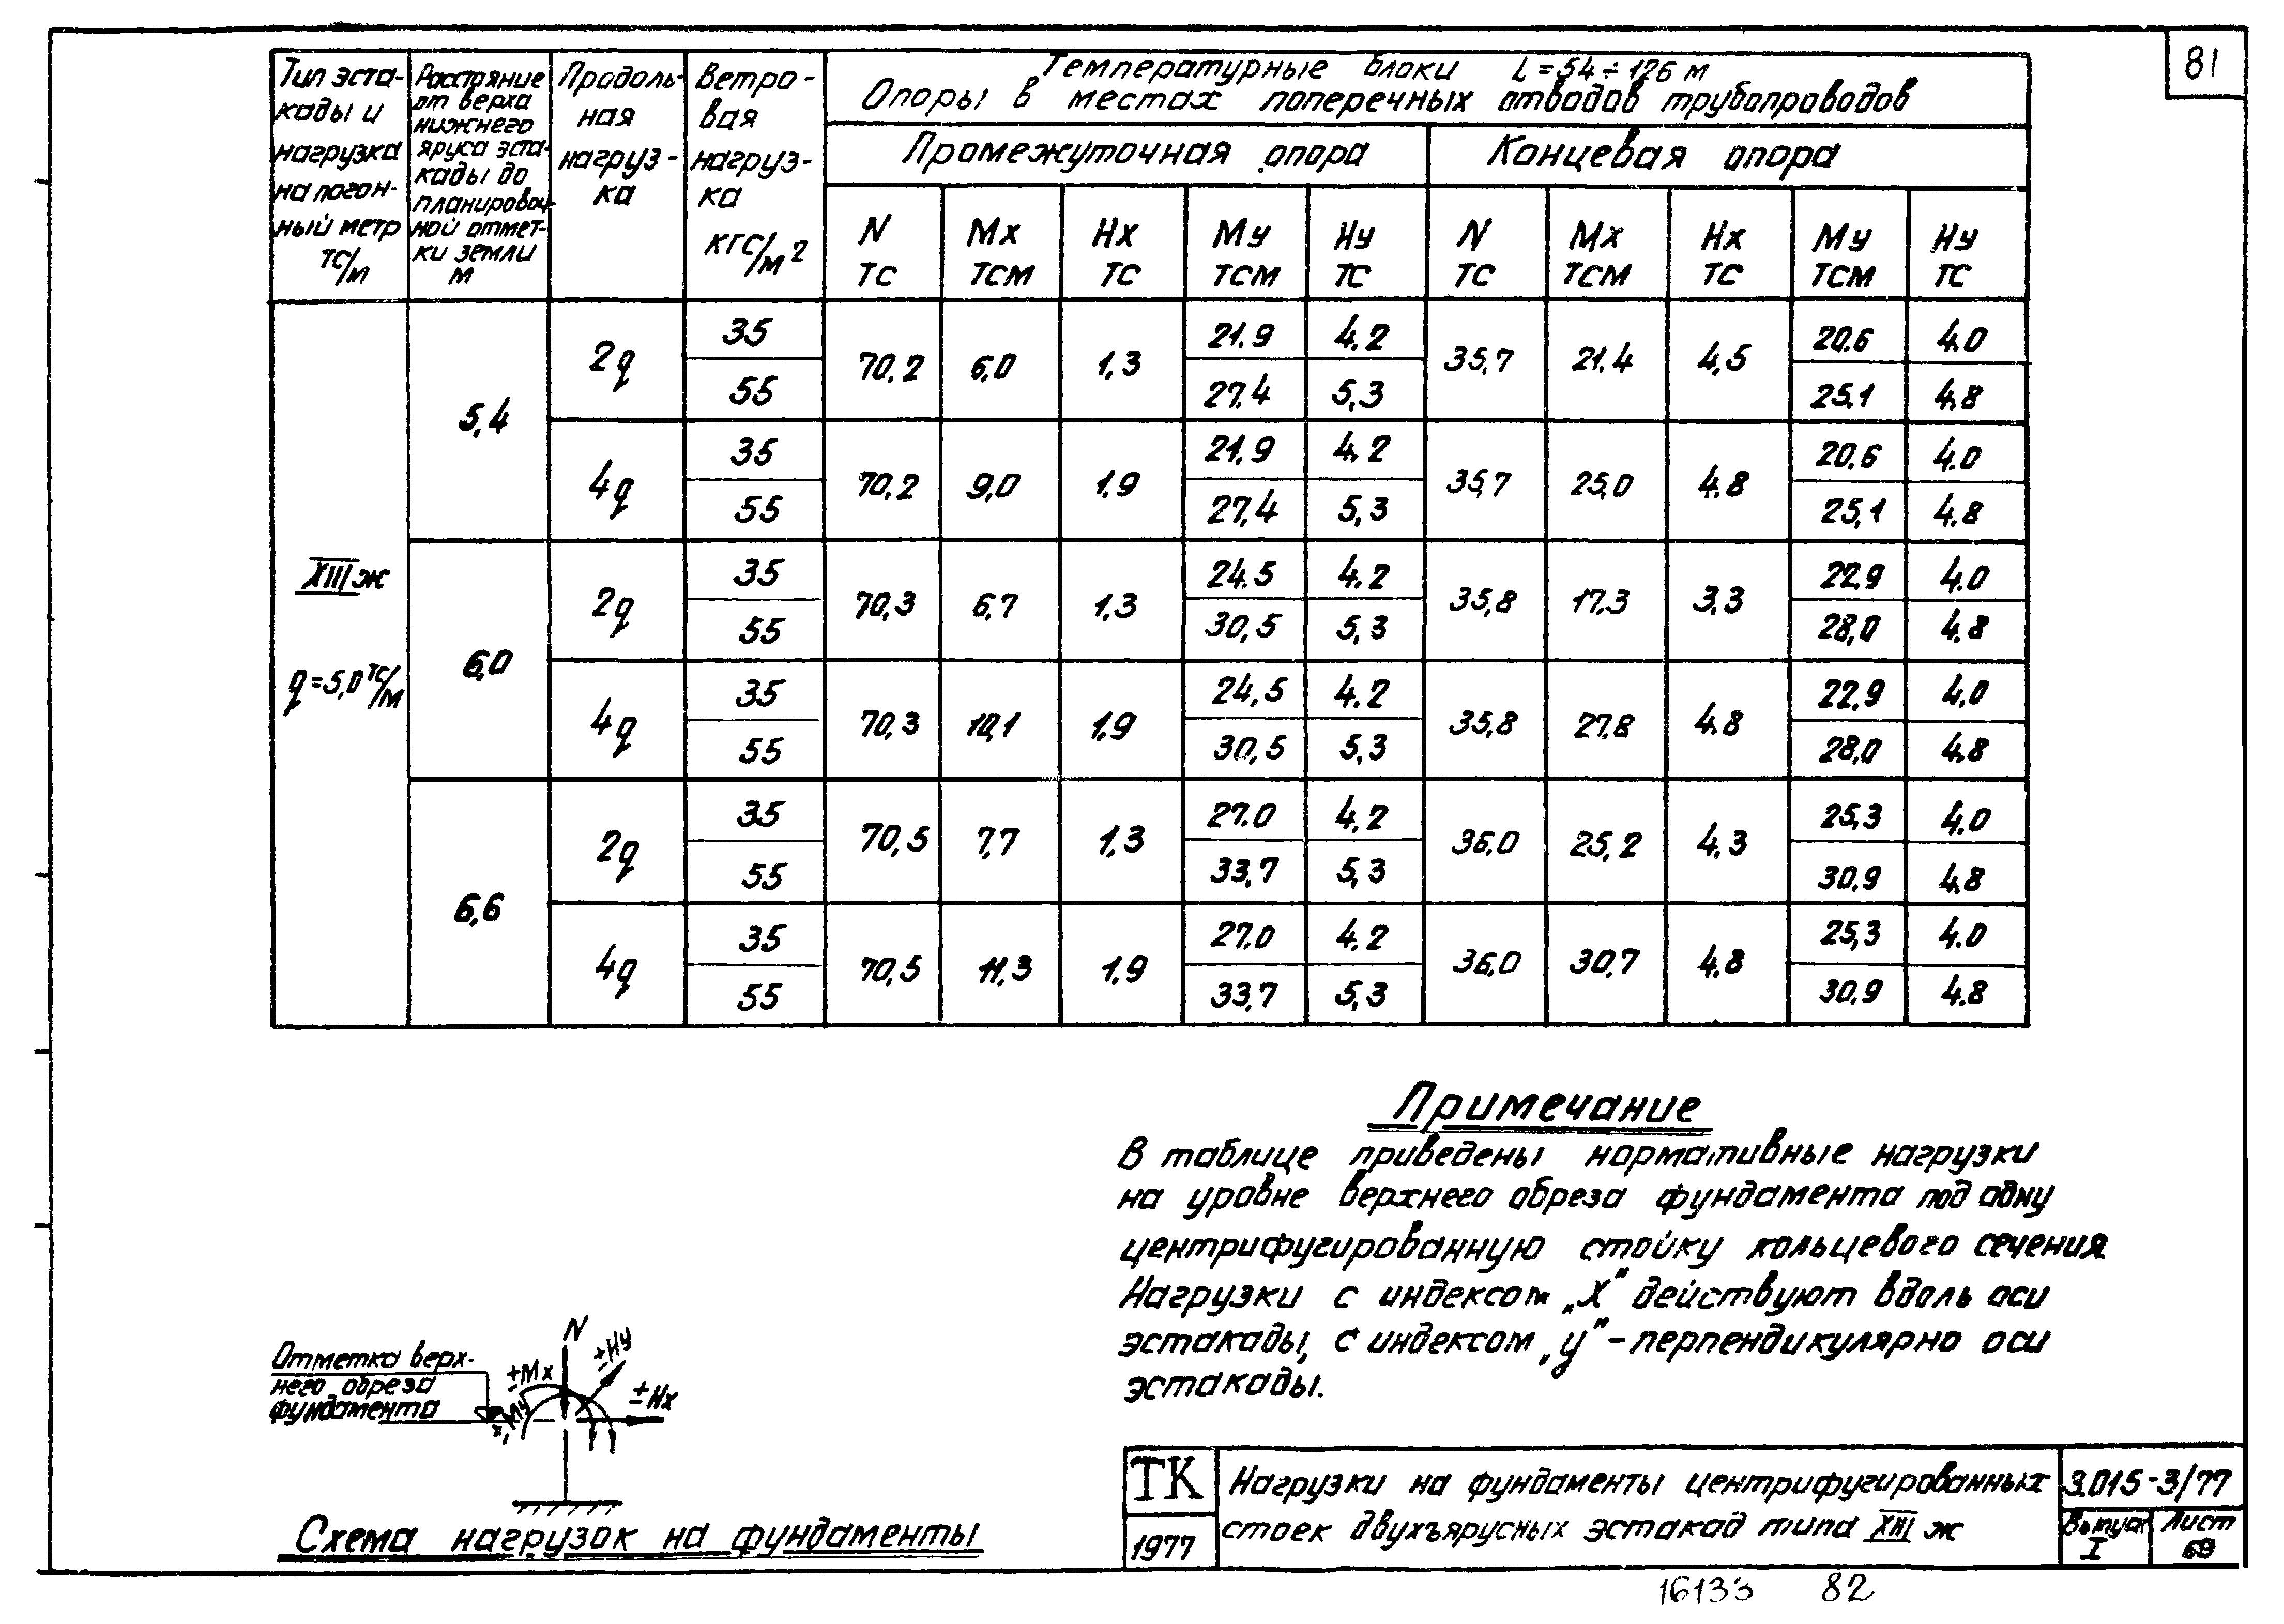 81
Тип эста-
кады и
нагрузка
на погон-
ный метр
тс/м
Расстояние
от верха
нижнего
яруса эста-
кады до
планировоч-
ной отмет-
ки земли
м
Продоль-
ная
нагруз-
ка
Ветро-
вая
нагруз-
ка
кгс/м²
Температурные блоки L=54÷126 м
Опоры в местах поперечных отводов трубопроводов
Промежуточная опора Концевая опора
N Mx Hx My Hy N Mx Hx My Hy
тс тсм тс тсм тс тс тсм тс тсм тс
XIII ж
q=5,0 тс/м
5,4
2q 35 70,2 6,0 1,3 21.9 4.2 35,7 21.4 4,5 20.6 4.0
55 27.4 5,3 25,1 4,8
4q 35 70,2 9,0 1,9 21,9 4,2 35,7 25,0 4.8 20,6 4.0
55 27,4 5,3 25,1 4.8
6,0
2q 35 70,3 6,7 1,3 24.5 4.2 35,8 17.3 3,3 22,9 4.0
55 30,5 5,3 28,0 4.8
4q 35 70,3 10,1 1,9 24,5 4.2 35,8 27,8 4.8 22.9 4,0
55 30,5 5,3 28,0 4,8
6,6
2q 35 70,5 7,7 1,3 27.0 4,2 36,0 25,2 4,3 25,3 4.0
55 33,7 5,3 30,9 4,8
4q 35 70,5 11,3 1,9 27.0 4.2 36,0 30,7 4.8 25,3 4.0
55 33,7 5,3 30,9 4.8
Примечание
В таблице приведены нормативные нагрузки
на уровне верхнего обреза фундамента под одну
центрифугированную стойку кольцевого сечения.
Нагрузки с индексом „X" действуют вдоль оси
эстакады, с индексом „y" - перпендикулярно оси
эстакады.
Отметка верх-
него обреза
фундамента
N
±Hy
±Mx
±Hx
±My
Схема нагрузок на фундаменты
ТК
1977
Нагрузки на фундаменты центрифугированных
стоек двухъярусных эстакад типа XIII ж
3.015-3/77
Выпуск
I
Лист
69
16133 82